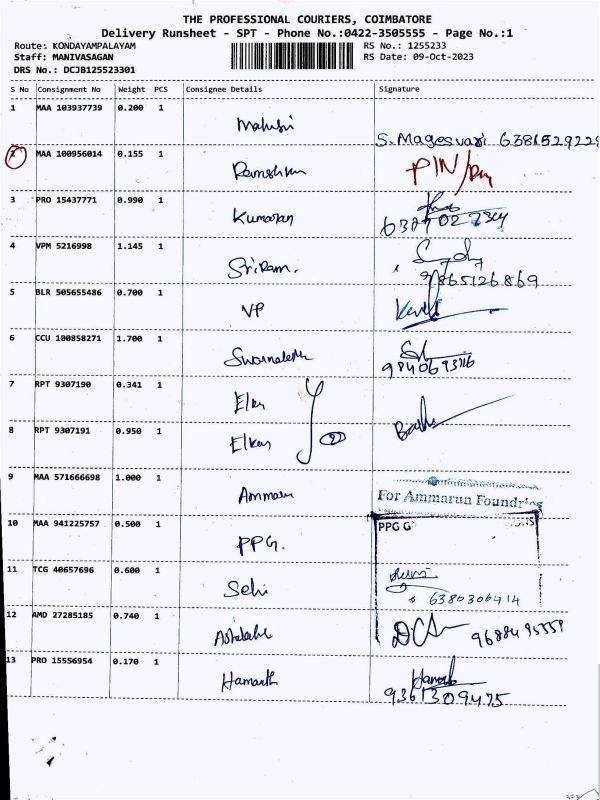 THE PROFESSIONAL COURIERS, COIMBATORE
Delivery Runsheet - SPT - Phone No.:0422-3505555 - Page No.:1
Route: KONDAYAMPALAYAM RS No.: 1255233
Staff: MANIVASAGAN RS Date: 09-Oct-2023
DRS No.: DCJB125523301
S No Consignment No Weight PCS Consignee Details Signature
1 MAA 103937739 0.200 1
S. Magesvari
2 MAA 100956014 0.155 1 PIN/
3 PRO 15437771 0.990 1 Kumaran
4 VPM 5216998 1.145 1 Sriram.
9865126869
5 BLR 505655486 0.700 1 VP
6 CCU 100858271 1.700 1
7 RPT 9307190 0.341 1
8 RPT 9307191 0.950 1
9 MAA 571666698 1.000 1
For Ammarun Foundries
10 MAA 941225757 0.500 1 PPG. PPG
11 TCG 40657696 0.600 1
6380306414
12 AMD 27285185 0.740 1
13 PRO 15556954 0.170 1
9361309475